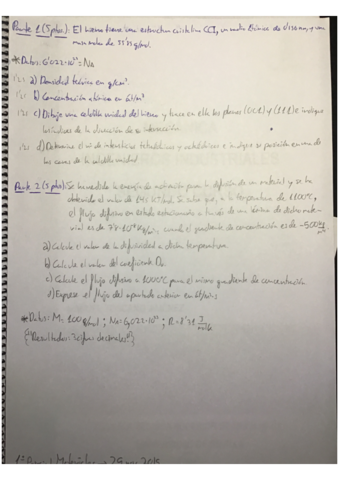 Parte 1 (5 ptos): El hierro tiene una estructura cristalina CCI, un radio atómico de 0'124 nm, y una
masa molar de 55'85 g/mol.
*Datos: 6'022·10²³ = Na
1'25 a) Densidad teórica en g/cm³.
1'25 b) Concentración atómica en át/m³
1'25 c) Dibuje una celdilla unidad del hierro y trace en ella los planos (011) y (111) e indique
los índices de la dirección de su intersección.
1'25 d) Determine el nº de intersticios tetraédricos y octaédricos e indique su posición en una de
las caras de la celdilla unidad
Parte 2 (5 ptos): Se ha medido la energía de activación para la difusión de un material y se ha
obtenido el valor de kJ/mol. Se sabe que, a la temperatura de 1100°C,
el flujo difusivo en estado estacionario a través de una lámina de dicho mate-
rial es de cuando el gradiente de concentración es de -500
a) Calcule el valor de la difusividad a dicha temperatura
b) Calcule el valor del coeficiente D₀
c) Calcule el flujo difusivo a 1000°C para el mismo gradiente de concentración
d) Exprese el flujo del apartado anterior en át/m²·s
*Datos: M = 100 g/mol ; Na = 6,022·10²³ ; R = 8'31 J/mol·K